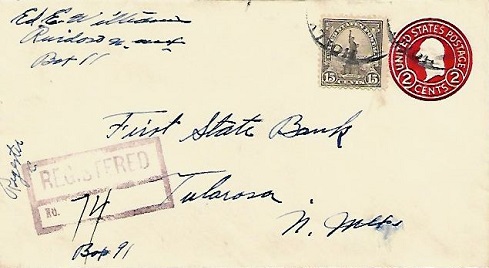 Ed. E.
Ruidoso N. Mex
Box 11
15 CENTS 15
UNITED STATES POSTAGE
2 CENTS 2
First State Bank
Register
REGISTERED
No. 74
Tularosa
N. Mex
Box 91